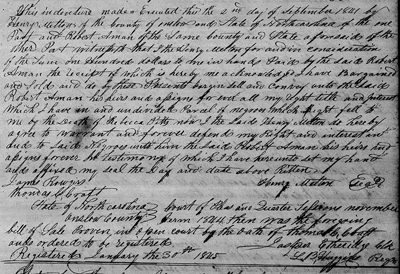 This indenture made & Executed this the 2nd day of September 1821 by
Henry Melton of the County of onslow and State of North carolina of the one
Part and Robert Aman of the Same County and State aforesaid of the
other Part witnesseth that I the Henry Melton for and in consideration
of the Sum one Hundred dollars to me in hand Paid by the Said Robert
Aman the receipt of which is hereby me acknowledged I have Bargained
and Sold and do by these Present bargain sell and Convey unto the Said
Robert Aman his heirs and assigns forever all my Right title and interest
Which I have in and undivided of negroes which fell to
me by the Death of Rebecca Now I the Said Henry Melton do hereby
agree to warrant and forever defend my Right and interest in
and to Said Negroes unto him the Said Robert Aman his heirs and
assigns forever In testimony of which I have hereunto set my hand
and affixed my seal the Day and date above Ritten
James Henry Melton Seal
Thomas
State of North carolina Court of Pleas and Quarter Sessions november
onslow County term 1824 then was the foregoing
bill of Sale Proven in open court by the oath of thomas
and ordered to be registered
Registered January the 30th 1825